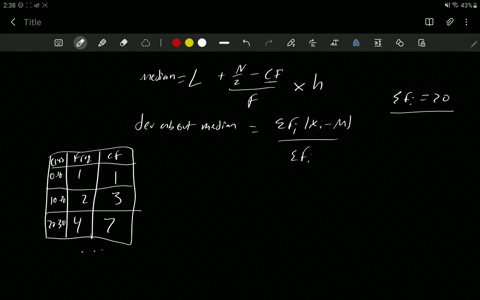 2:38
43%
Title
median = L + (N/2 - CF)/F × h
Σfi = 20
dev about median = Σfi |xi - M| / Σfi
Freq CF
0-10 1 1
10-20 2 3
20-30 4 7
...